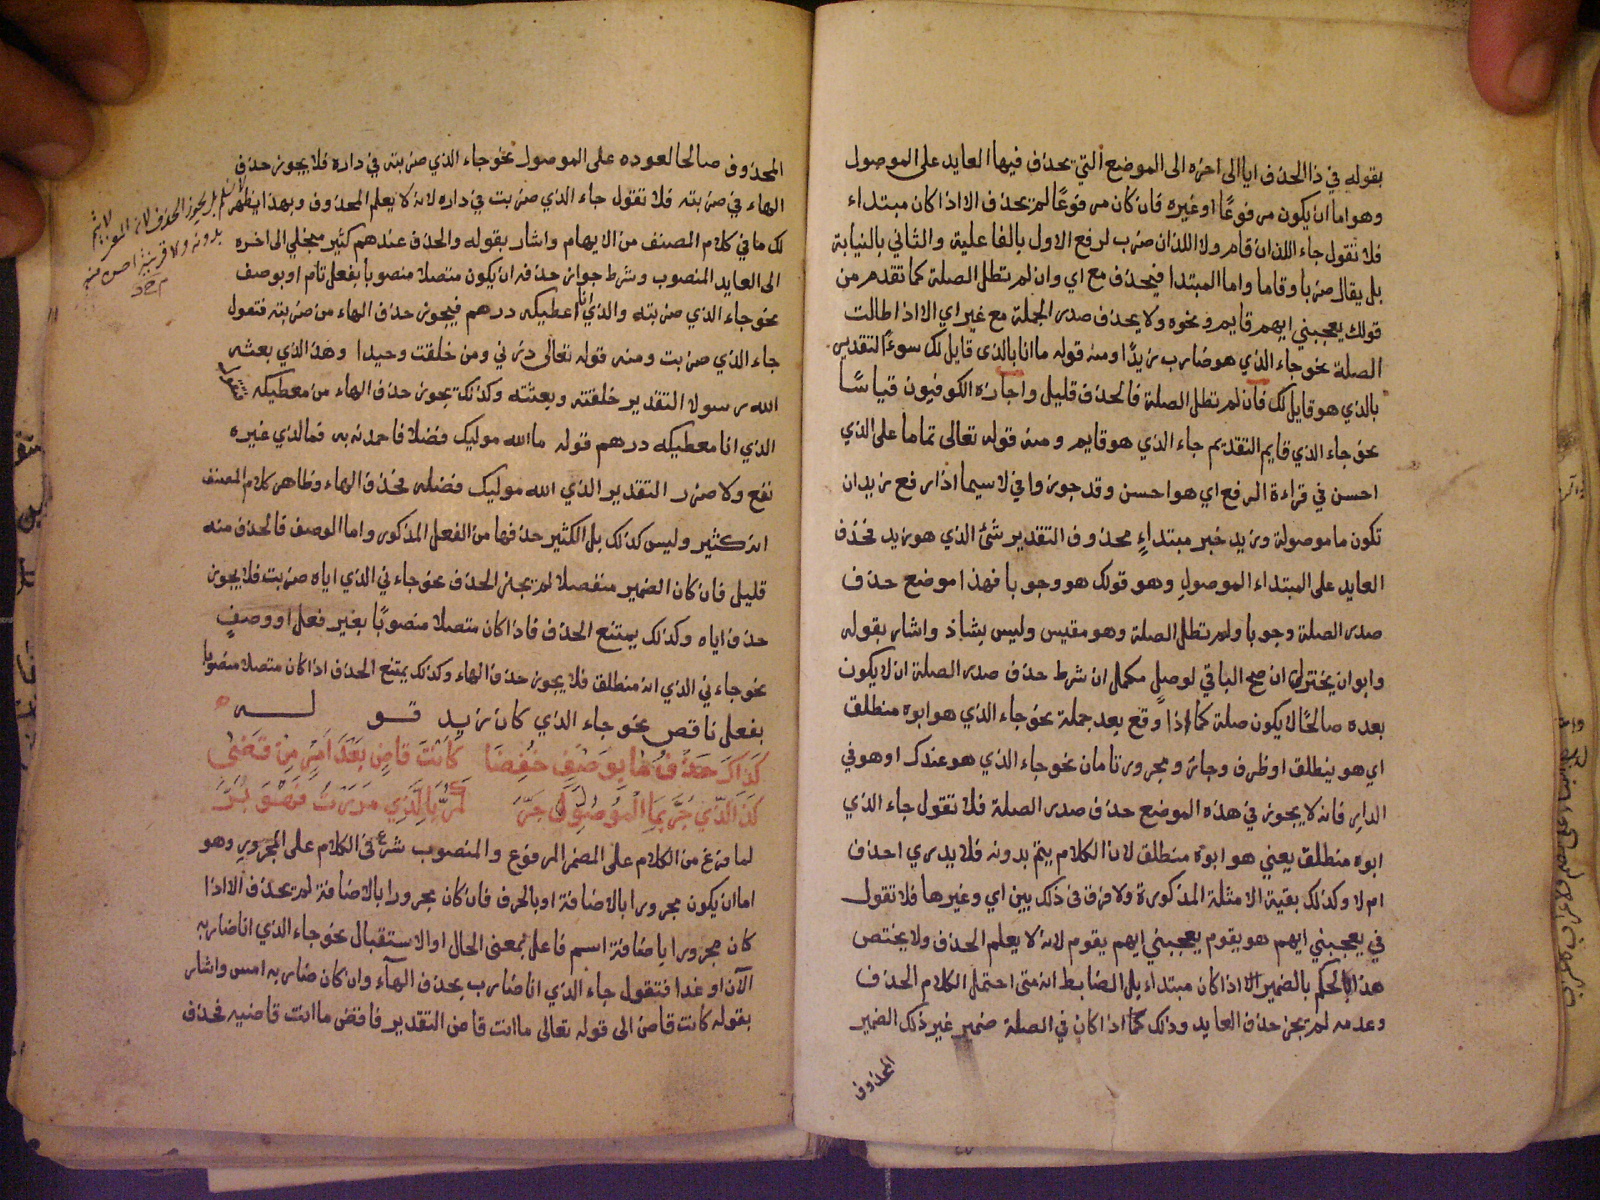 بقوله في ذا الحذف ايا الى اخره الى الموضع التي يحذف فيها العايد على الموصول
وهو اما ان يكون مرفوعًا او غيره فان كان مرفوعًا لم يحذف الا اذا كان مبتداء
فلا تقول جاء اللذان قام ولا اللذان ضرب لرفع الاول بالفاعلية والثاني بالنيابة
بل يقال ضربا وقاما واما المبتدا فيحذف مع اي وان لم تطل الصلة كما تقدم من
قولك يعجبني ايهم قايم ونحوه ولا يحذف صدر الجملة مع غير اي الا اذا طالت
الصلة نحو جاء الذي هو ضارب زيدًا ومنه قوله ما انا بالذى قايل لك سوءً التقدير
بالذي هو قايل لك فان لم تطل الصلة فالحذف قليل واجازه الكوفيون قياسًا
نحو جاء الذي قايم التقديم جاء الذي هو قايم ومنه قوله تعالى تماما على الذي
احسن في قراءة الرفع اي هو احسن وقد جوزوا في لاسيما اذا رفع زيد ان
تكون ما موصولة وزيد خبر مبتداءٍ محذوف التقدير شئ الذي هو زيد فحذف
العايد على المبتداء الموصول وهو قولك هو وجوبا فهذا موضع حذف
صدر الصلة وجوبا ولم تطل الصلة وهو مقيس وليس بشاذ واشار بقوله
وابوا ان يختزل ان صح الباقي لوصلٍ مكمل ان شرط حذف صدر الصلة ان لا يكون
بعده صالحًا لا يكون صلة كما اذا وقع بعد جملة نحو جاء الذي هو ابوه منطلق
اي هو ينطلق او ظرف وجار ومجرور تامان نحو جاء الذي هو عندك او هو في
الدار فانه لا يجوز في هذه الموضع حذف صدر الصلة فلا تقول جاء الذي
ابوه منطلق يعني هو ابوه منطلق لان الكلام يتم بدونه فلا يدري احذف
ام لا وكذلك بقية الامثلة المذكورة ولا فرق فى ذلك بين اي وغيرها فلا تقول
في يعجبني ايهم هو يقوم يعجبني ايهم يقوم لانه لا يعلم الحذف ولا يختص
هذا الحكم بالضمير الا اذا كان مبتداء بل الضابط انه متى احتمل الكلام الحذف
وعدمه لم يجز حذف العايد وذلك كما اذا كان في الصلة ضمير غير ذلك الضمير
المحذوف
المحذوف صالحا لعوده على الموصول نحو جاء الذي ضربته في داره فلا يجوز حذف
الهاء في ضربته فلا تقول جاء الذي ضربت في داره لانه لا يعلم المحذوف وبهذا يظهر
لك ما في كلام المصنف من الايهام واشار بقوله والحذف عندهم كثير منجلي الى اخره
الى العايد المنصوب وشرط جواز حذفه ان يكون متصلا منصوبا بفعل تام او بوصف
نحو جاء الذي ضربته والذي انا اعطيكه درهم فيجوز حذف الهاء من ضربته فتقول
جاء الذي ضربت ومنه قوله تعالى ذرني ومن خلقت وحيدا وهذا الذي بعث
الله رسولا التقدير خلقته وبعثته وكذلك يجوز حذف الهاء من معطيكه
الذي انا معطيكه درهم قوله ما الله موليك فضلا فاحمدنه به فما لذي غيره
نفع ولا ضرر التقدير الذي الله موليك فضله فحذف الهاء وظاهر كلام المصنف
انه كثير وليس كذلك بل الكثير حذفها من الفعل المذكور واما الوصف فالحذف منه
قليل فان كان الضمير منفصلا لم يجز الحذف نحو جاء ني الذي اياه ضربت فلا يجوز
حذف اياه وكذلك يمتنع الحذف فاذا كان متصلا منصوبًا بغير فعل او وصفٍ
نحو جاء ني الذي انه منطلق فلا يجوز حذف الهاء وكذلك يمتنع الحذف اذا كان متصلا منصوبا
بفعل ناقص نحو جاء الذي كان زيد قوله
كَذَاكَ حَذْفُ مَا بِوَصْفٍ خُفِضَا كَانْتَ قَاضٍ بَعْدَ اَمْرٍ مِنْ قَضٰى
كَذَ الَّذِي جُرَّ بِمَا الْمَوْصُوْلَ جَرّ كَمُرَّ بِالَّذِي مَرَرْتُ فَهْوَ بَرّ
لما فرغ من الكلام على المضمر المرفوع والمنصوب شرع فى الكلام على المجرور وهو
اما ان يكون مجرورا بالاضافة او بالحرف فان كان مجرورا بالاضافة لم يحذف الا اذا
كان مجرورا باضافة اسم فاعل بمعنى الحال او الاستقبال نحو جاء الذي انا ضاربه
الآن او غدا فتقول جاء الذي انا ضارب بحذف الهآء وان كان ضاربه امس واشار
بقوله كانت قاض الى قوله تعالى ما انت قاض التقدير فاقض ما انت قاضيه فحذف